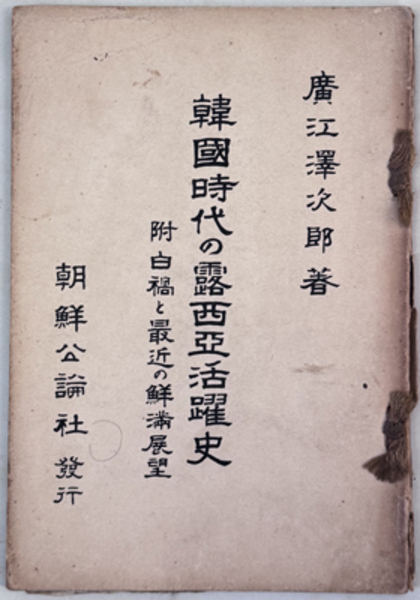 廣江澤次郎著
韓國時代の露西亞活躍史
附白禍と最近の鮮滿展望
朝鮮公論社 發行